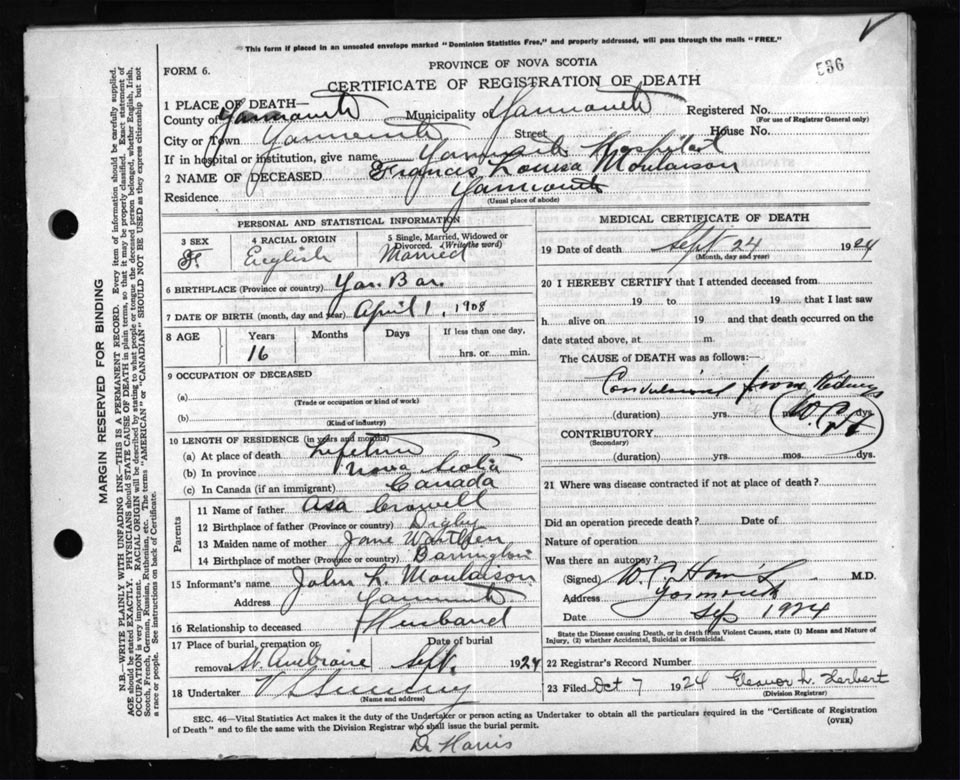 This form if placed in an unsealed envelope marked "Dominion Statistics Free," and properly addressed, will pass through the mails "FREE."
PROVINCE OF NOVA SCOTIA
536
FORM 6.
CERTIFICATE OF REGISTRATION OF DEATH
1 PLACE OF DEATH—
County of Yarmouth Municipality of Yarmouth Registered No.
(For use of Registrar General only)
City or Town Yarmouth Street House No.
If in hospital or institution, give name Yarmouth Hospital
2 NAME OF DECEASED Francis Louisa Moulaison
Residence Yarmouth
(Usual place of abode)
PERSONAL AND STATISTICAL INFORMATION
3 SEX 4 RACIAL ORIGIN 5 Single, Married, Widowed or Divorced. (Write the word)
F English Married
6 BIRTHPLACE (Province or country) Yar. Bar.
7 DATE OF BIRTH (month, day and year) April 1, 1908
8 AGE Years Months Days If less than one day,
16 hrs. or min.
9 OCCUPATION OF DECEASED
(a)
(Trade or occupation or kind of work)
(b)
(Kind of industry)
10 LENGTH OF RESIDENCE (in years and months)
(a) At place of death Lifetime
(b) In province Nova Scotia
(c) In Canada (if an immigrant) Canada
Parents
11 Name of father Asa Crowell
12 Birthplace of father (Province or country) Digby
13 Maiden name of mother Jane
14 Birthplace of mother (Province or country) Barrington
15 Informant's name John L. Moulaison
Address Yarmouth
16 Relationship to deceased Husband
17 Place of burial, cremation or removal Date of burial
St. Ambroise Sept. 1924
18 Undertaker V
(Name and address)
MEDICAL CERTIFICATE OF DEATH
19 Date of death Sept 24 1924
(Month, day and year)
20 I HEREBY CERTIFY that I attended deceased from
19 to 19 that I last saw
h alive on 19 and that death occurred on
date stated above, at m.
The CAUSE OF DEATH was as follows:
Convulsions from Kidneys
(duration) yrs. dys.
CONTRIBUTORY
(Secondary)
(duration) yrs. mos. dys.
21 Where was disease contracted if not at place of death?
Did an operation precede death? Date of
Nature of operation
Was there an autopsy?
(Signed) W. C. Harris M.D.
Address Yarmouth
Date Sep 1924
State the Disease causing Death, or in death from Violent Causes, state (1) Means and Nature of Injury, (2) whether Accidental, Suicidal or Homicidal.
22 Registrar's Record Number
23 Filed Oct 7 1924 Eleanor L. Herbert
(Division Registrar)
SEC. 46—Vital Statistics Act makes it the duty of the Undertaker or person acting as Undertaker to obtain all the particulars required in the "Certificate of Registration
of Death" and to file the same with the Division Registrar who shall issue the burial permit. (OVER)
Dr Harris
MARGIN RESERVED FOR BINDING
N.B.—WRITE PLAINLY WITH UNFADING INK—THIS IS A PERMANENT RECORD. Every item of information should be carefully supplied.
AGE should be stated EXACTLY. PHYSICIANS should STATE CAUSE OF DEATH in plain terms, so that it may be properly classified. Exact statement of
OCCUPATION is very important. RACIAL ORIGIN will be described by stating to what people or tongue the deceased person belonged, whether English, Irish,
Scotch, French, German, Russian, Ruthenian, etc. The terms "AMERICAN" or "CANADIAN" SHOULD NOT BE USED as they express citizenship but not
a race or people. See instructions on back of Certificate.